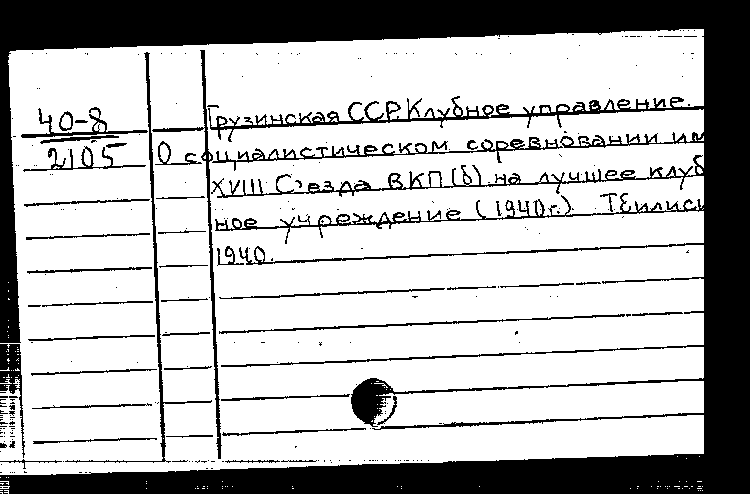 40-8
2105
Грузинская ССР. Клубное управление.
О социалистическом соревновании им
XVIII С'езда ВКП(б) на лучшее клуб
ное учреждение (1940г.) Тбилиси
1940.